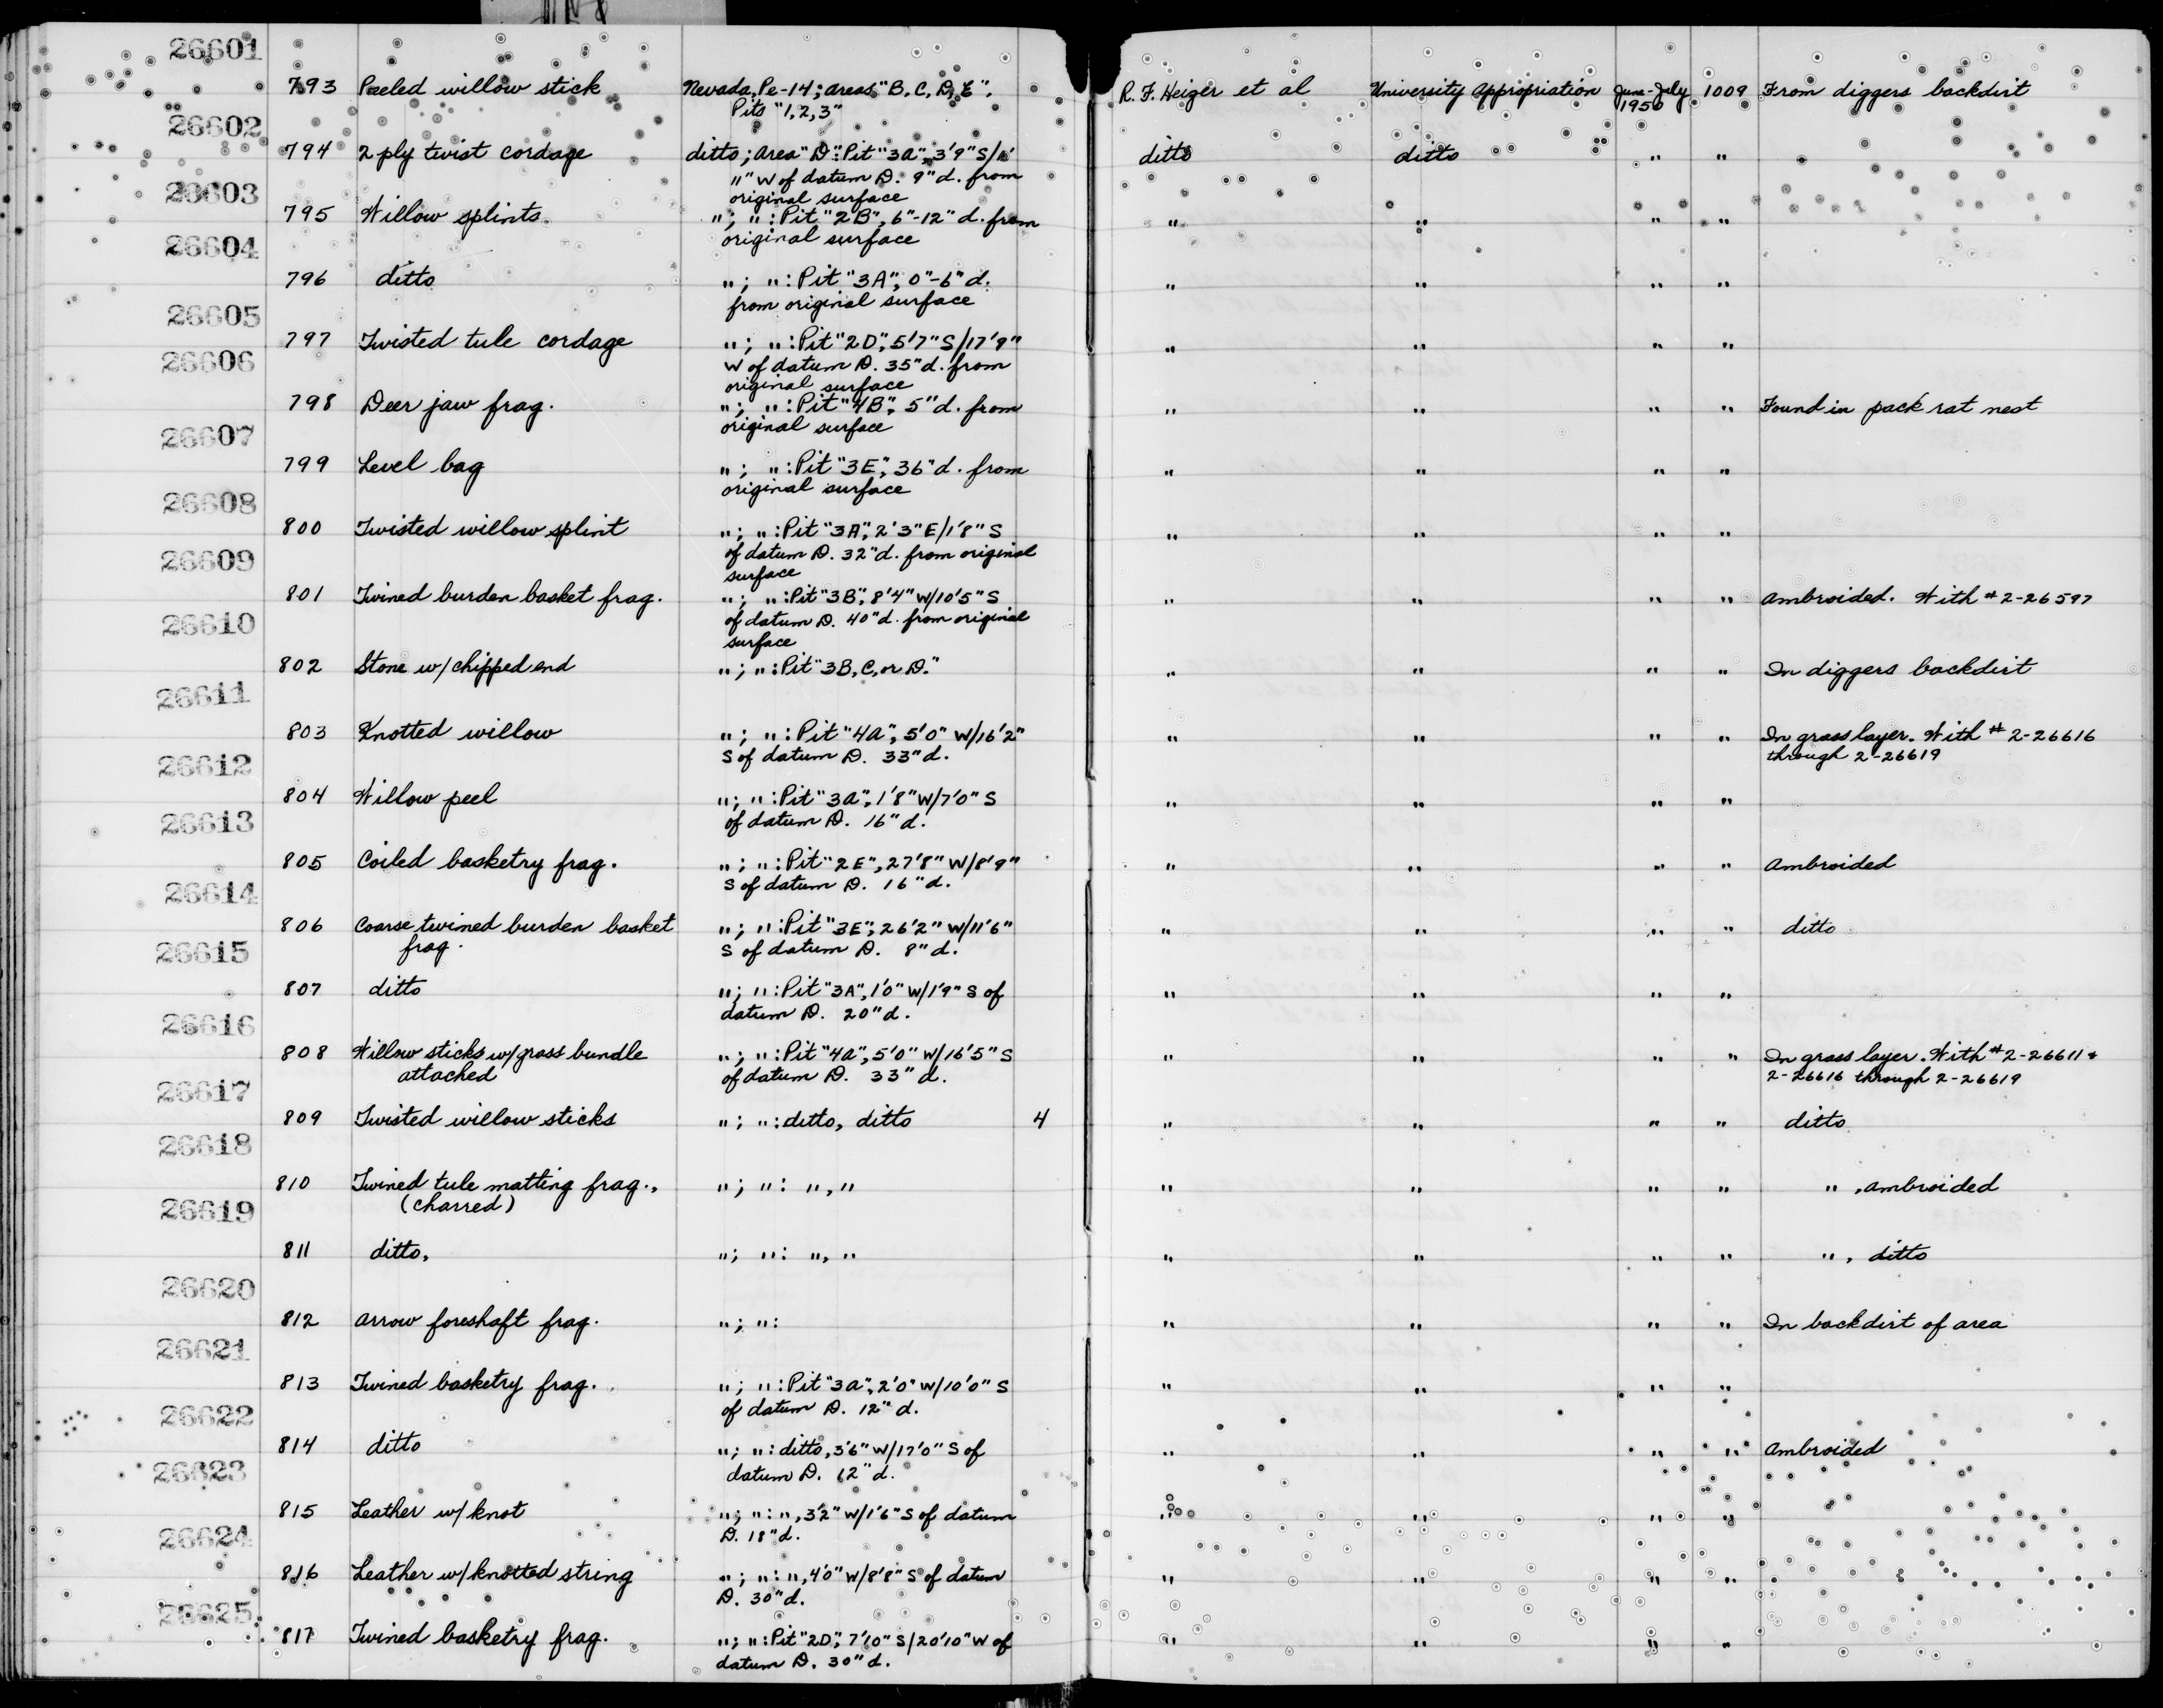 26601
793 Peeled willow stick Nevada, Pe-14; areas "B, C, D, E". R. F. Heizer et al University Appropriation June-July 1009 From diggers backdirt
Pits "1, 2, 3" 1950
26602
794 2 ply twist cordage ditto; area "D": Pit "3A", 3'9" S/1' ditto ditto " "
11" W of datum D. 9" d. from
original surface
26603
795 Willow splints "; ": Pit "2B", 6"-12" d. from " " " "
original surface
26604
796 ditto "; ": Pit "3A", 0"-6" d. " " " "
from original surface
26605
797 Twisted tule cordage "; ": Pit "2D", 5'7" S/17'9" " " " "
W of datum D. 35" d. from
original surface
26606
798 Deer jaw frag. "; ": Pit "4B", 5" d. from " " " " Found in pack rat nest
original surface
26607
799 Level bag "; ": Pit "3E", 36" d. from " " " "
original surface
26608
800 Twisted willow splint "; ": Pit "3A", 2'3" E/1'8" S " " " "
of datum D. 32" d. from original
surface
26609
801 Twined burden basket frag. "; ": Pit "3B", 8'4" W/10'5" S " " " " Ambroided. With # 2-26597
of datum D. 40" d. from original
surface
26610
802 Stone w/ chipped end "; ": Pit "3B, C, or D." " " " " In diggers backdirt
26611
803 Knotted willow "; ": Pit "4A", 5'0" W/16'2" " " " " In grass layer. With # 2-26616
S of datum D. 33" d. through 2-26619
26612
804 Willow peel "; ": Pit "3A", 1'8" W/7'0" S " " " "
of datum D. 16" d.
26613
805 Coiled basketry frag. "; ": Pit "2E", 27'8" W/8'9" " " " " Ambroided
S of datum D. 16" d.
26614
806 Coarse twined burden basket "; ": Pit "3E", 26'2" W/11'6" " " " " ditto
frag. S of datum D. 8" d.
26615
807 ditto "; ": Pit "3A", 1'0" W/1'9" S of " " " "
datum D. 20" d.
26616
808 Willow sticks w/ grass bundle "; ": Pit "4A", 5'0" W/16'5" S " " " " In grass layer. With # 2-26611 &
attached of datum D. 33" d. 2-26616 through 2-26619
26617
809 Twisted willow sticks "; ": ditto, ditto 4 " " " " ditto
26618
810 Twined tule matting frag., "; ": ", " " " " " ", ambroided
(charred)
26619
811 ditto, "; ": ", " " " " " ", ditto
26620
812 Arrow foreshaft frag. "; ": " " " " In backdirt of area
26621
813 Twined basketry frag. "; ": Pit "3A", 2'0" W/10'0" S " " " "
of datum D. 12" d.
26622
814 ditto "; ": ditto, 3'6" W/17'0" S of " " " " Ambroided
datum D. 12" d.
26623
815 Leather w/ knot "; ": ", 3'2" W/1'6" S of datum " " " "
D. 18" d.
26624
816 Leather w/ knotted string "; ": ", 4'0" W/8'8" S of datum " " " "
D. 30" d.
26625
817 Twined basketry frag. "; ": Pit "2D", 7'10" S/20'10" W of " " " "
datum D. 30" d.